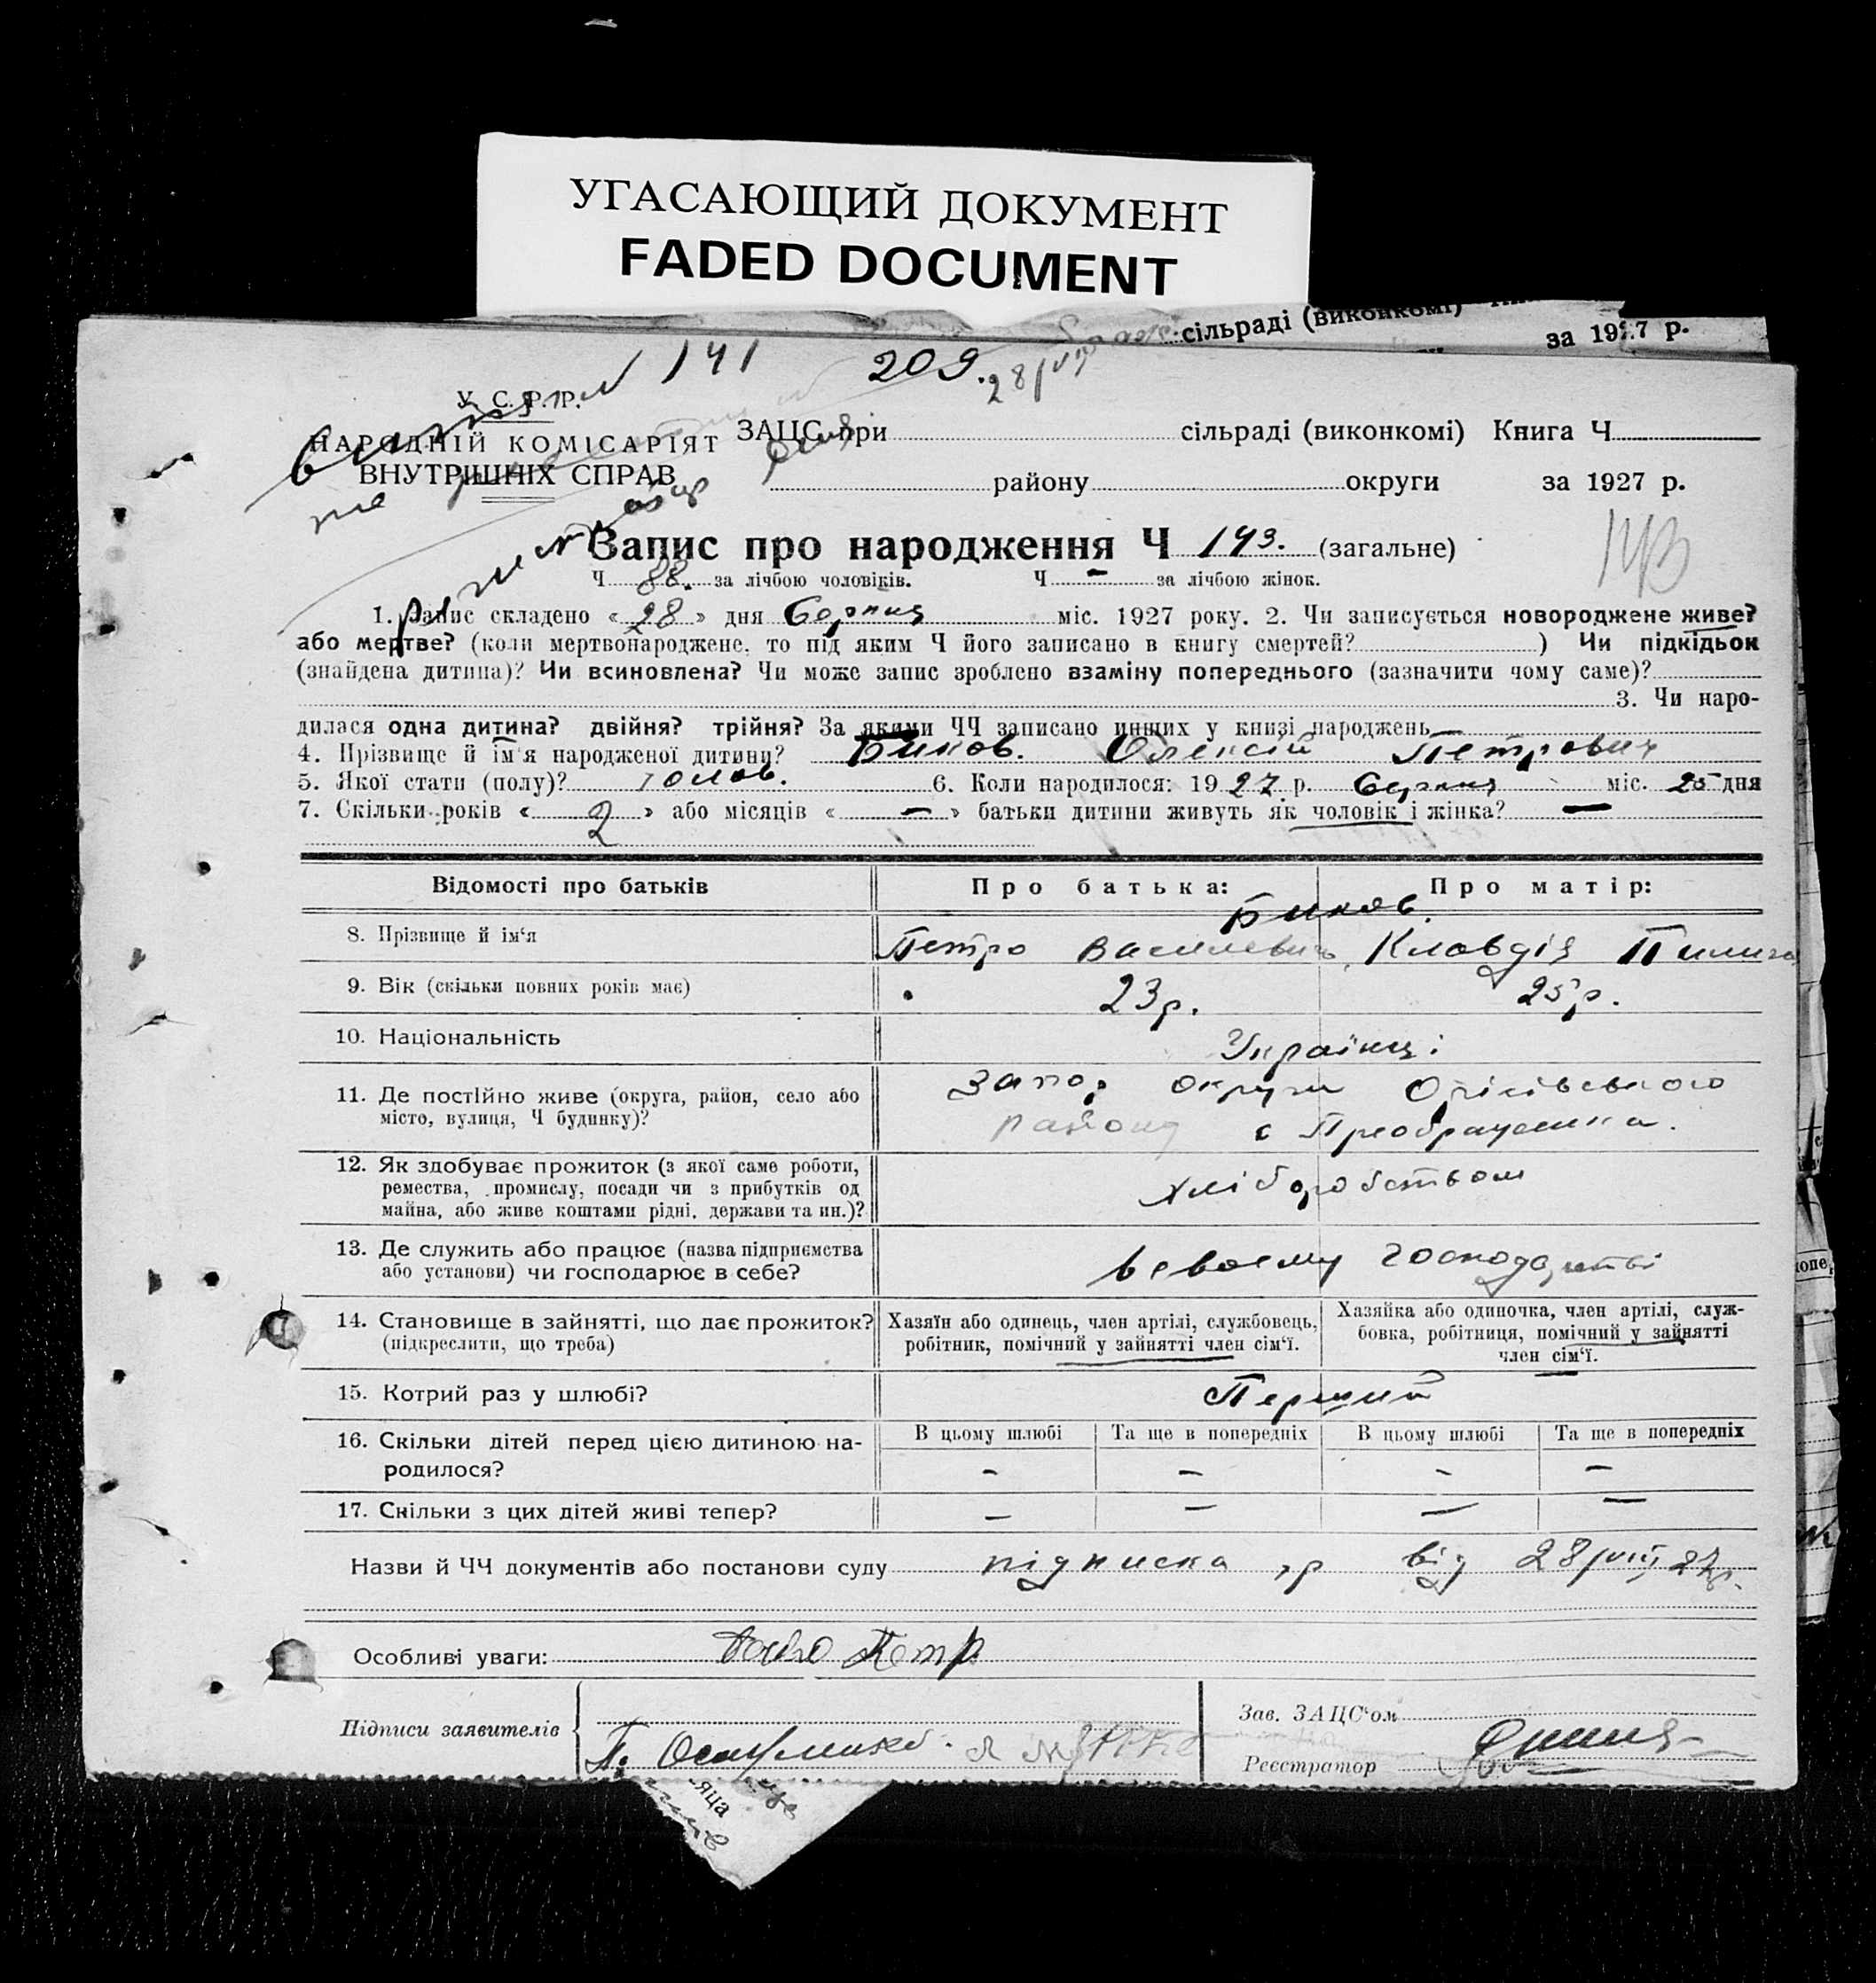 УГАСАЮЩИЙ ДОКУМЕНТ
FADED DOCUMENT
сільраді (виконкомі)
за 1927 р.
141 209. 28/VIII
У. С. Р. Р.
НАРОДНІЙ КОМІСАРІЯТ
ВНУТРИШНІХ СПРАВ
ЗАЦС при сільраді (виконкомі) Книга Ч
району округи за 1927 р.
Запис про народження Ч 143. (загальне)
Ч 88. за лічбою чоловіків. Ч — за лічбою жінок.
1. Запис складено « 28 » дня Серпня міс. 1927 року. 2. Чи записується новороджене живе?
або мертве? (коли мертвонароджене, то під яким Ч його записано в книгу смертей? ) Чи підкідьок
(знайдена дитина)? Чи всиновлена? Чи може запис зроблено взаміну попереднього (зазначити чому саме)?
3. Чи наро-
дилася одна дитина? двійня? трійня? За якими ЧЧ записано инших у книзі народжень
4. Прізвище й ім'я народженої дитини? Биков. Олексій Петрович
5. Якої стати (полу)? чолов. 6. Коли народилося: 1927 р. Серпня міс. 25 дня
7. Скільки років « 2 » або місяців « — » батьки дитини живуть як чоловік і жінка? —
Відомості про батьків Про батька: Про матір:
Биков.
8. Прізвище й ім'я Петро Василевич Кловдія Пилип
9. Вік (скільки повних років має) 23 р. 25 р.
10. Національність Українці
11. Де постійно живе (округа, район, село або Запор округи Оріхівського
місто, вулиця, Ч будинку)? району с Преображенка.
12. Як здобуває прожиток (з якої саме роботи,
ремества, промислу, посади чи з прибутків од хліборобством
майна, або живе коштами рідні, держави та ин.)?
13. Де служить або працює (назва підприємства
або установи) чи господарює в себе? в своєму господарстві
14. Становище в зайнятті, що дає прожиток? Хазяїн або одинець, член артілі, службовець, Хазяйка або одиночка, член артілі, служ-
(підкреслити, що треба) робітник, помічний у зайнятті член сім'ї. бовка, робітниця, помічний у зайнятті
член сім'ї.
15. Котрий раз у шлюбі? Перший
16. Скільки дітей перед цією дитиною на- В цьому шлюбі Та ще в попередніх В цьому шлюбі Та ще в попередніх
родилося? — — — —
17. Скільки з цих дітей живі тепер? — — — —
Назви й ЧЧ документів або постанови суду підписка від 28/VIII 27р.
Особливі уваги:
Підписи заявителів
Зав. ЗАЦС'ом
Реєстратор